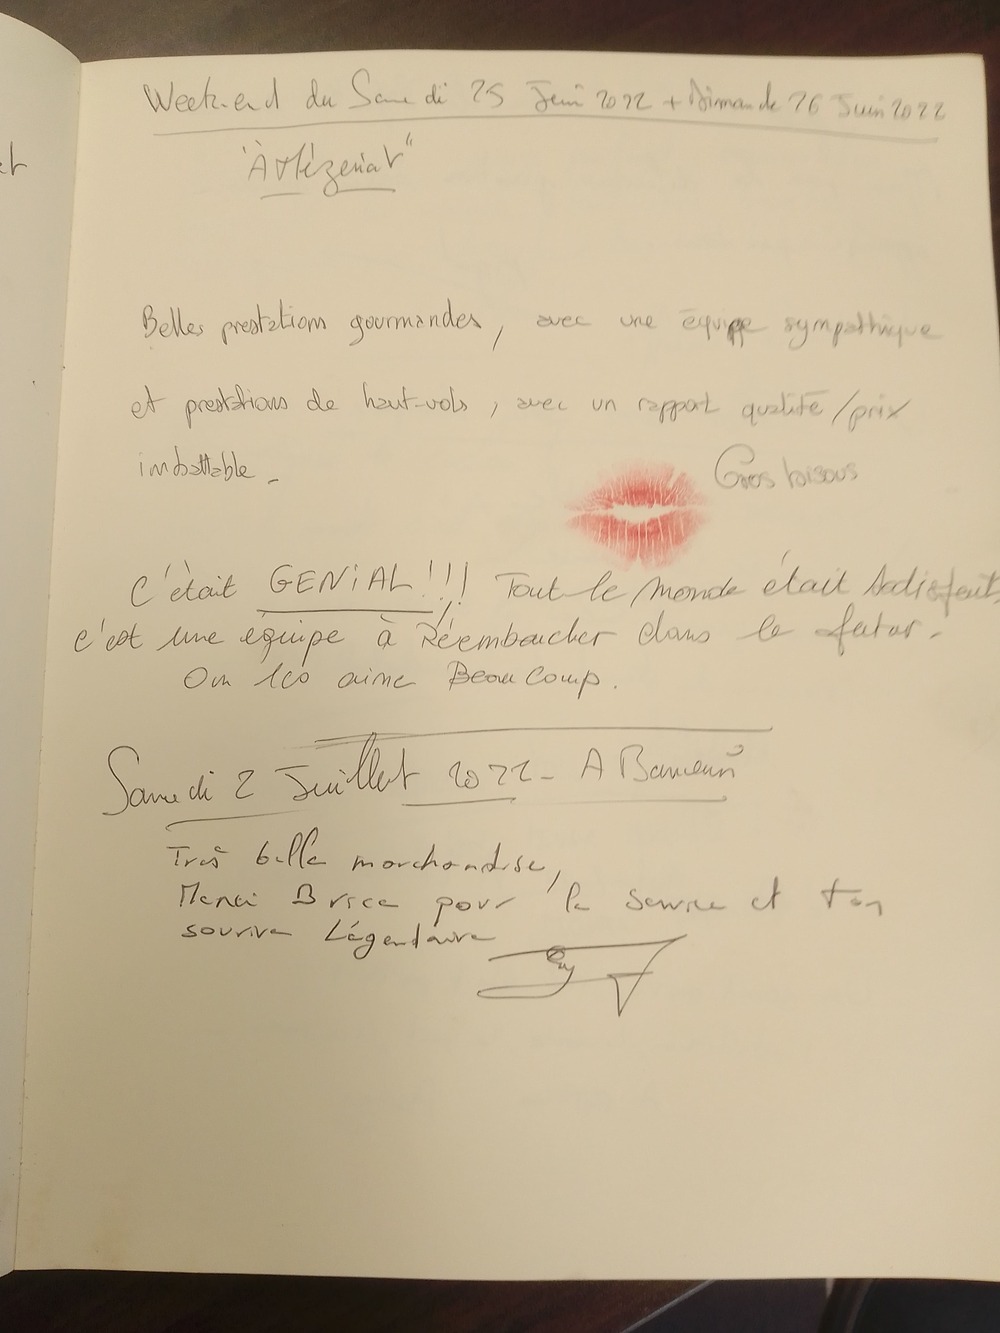 Week-end du Samedi 25 Juin 2022 + Dimanche 26 Juin 2022
"À Mézeriat"
Belles prestations gourmandes, avec une équipe sympathique
et prestations de haut-vols, avec un rapport qualité/prix
imbattable.
Gros bisous
C'était GENiAL!!! Tout le monde était satisfait,
c'est une équipe à Réembaucher dans le futur.
On les aime Beaucoup.
Samedi 2 Juillet 2022 - A
Très belle marchandise,
Merci Brice pour le service et ton
sourire Légendaire